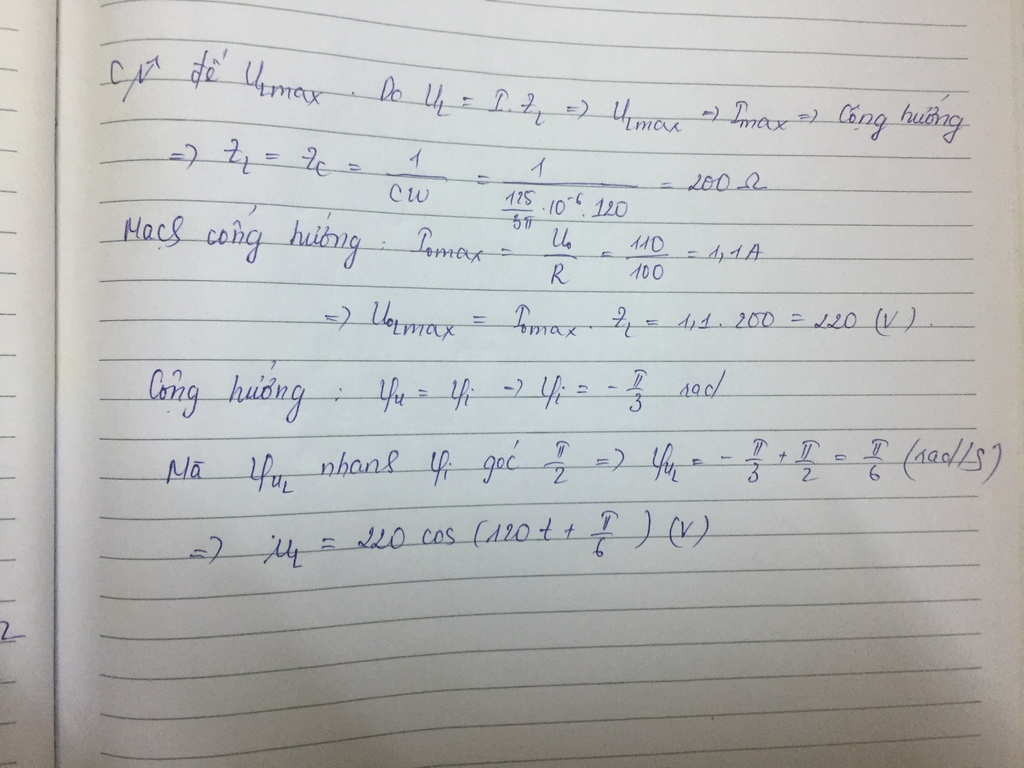 c/ Để U_L max. Do U_L = I.Z_L => U_L max => I max => Cộng hưởng
=> Z_L = Z_C = 1/(Cω) = 1/(125/3π . 10^-6 . 120) = 200 Ω
Mạch cộng hưởng : I₀max = U₀/R = 110/100 = 1,1A
=> U₀L max = I₀max . Z_L = 1,1 . 200 = 220 (V).
Cộng hưởng : φu = φi => φi = -π/3 rad
Mà φu_L nhanh φi góc π/2 => φu_L = -π/3 + π/2 = π/6 (rad/s)
=> u_L = 220 cos (120t + π/6) (V)